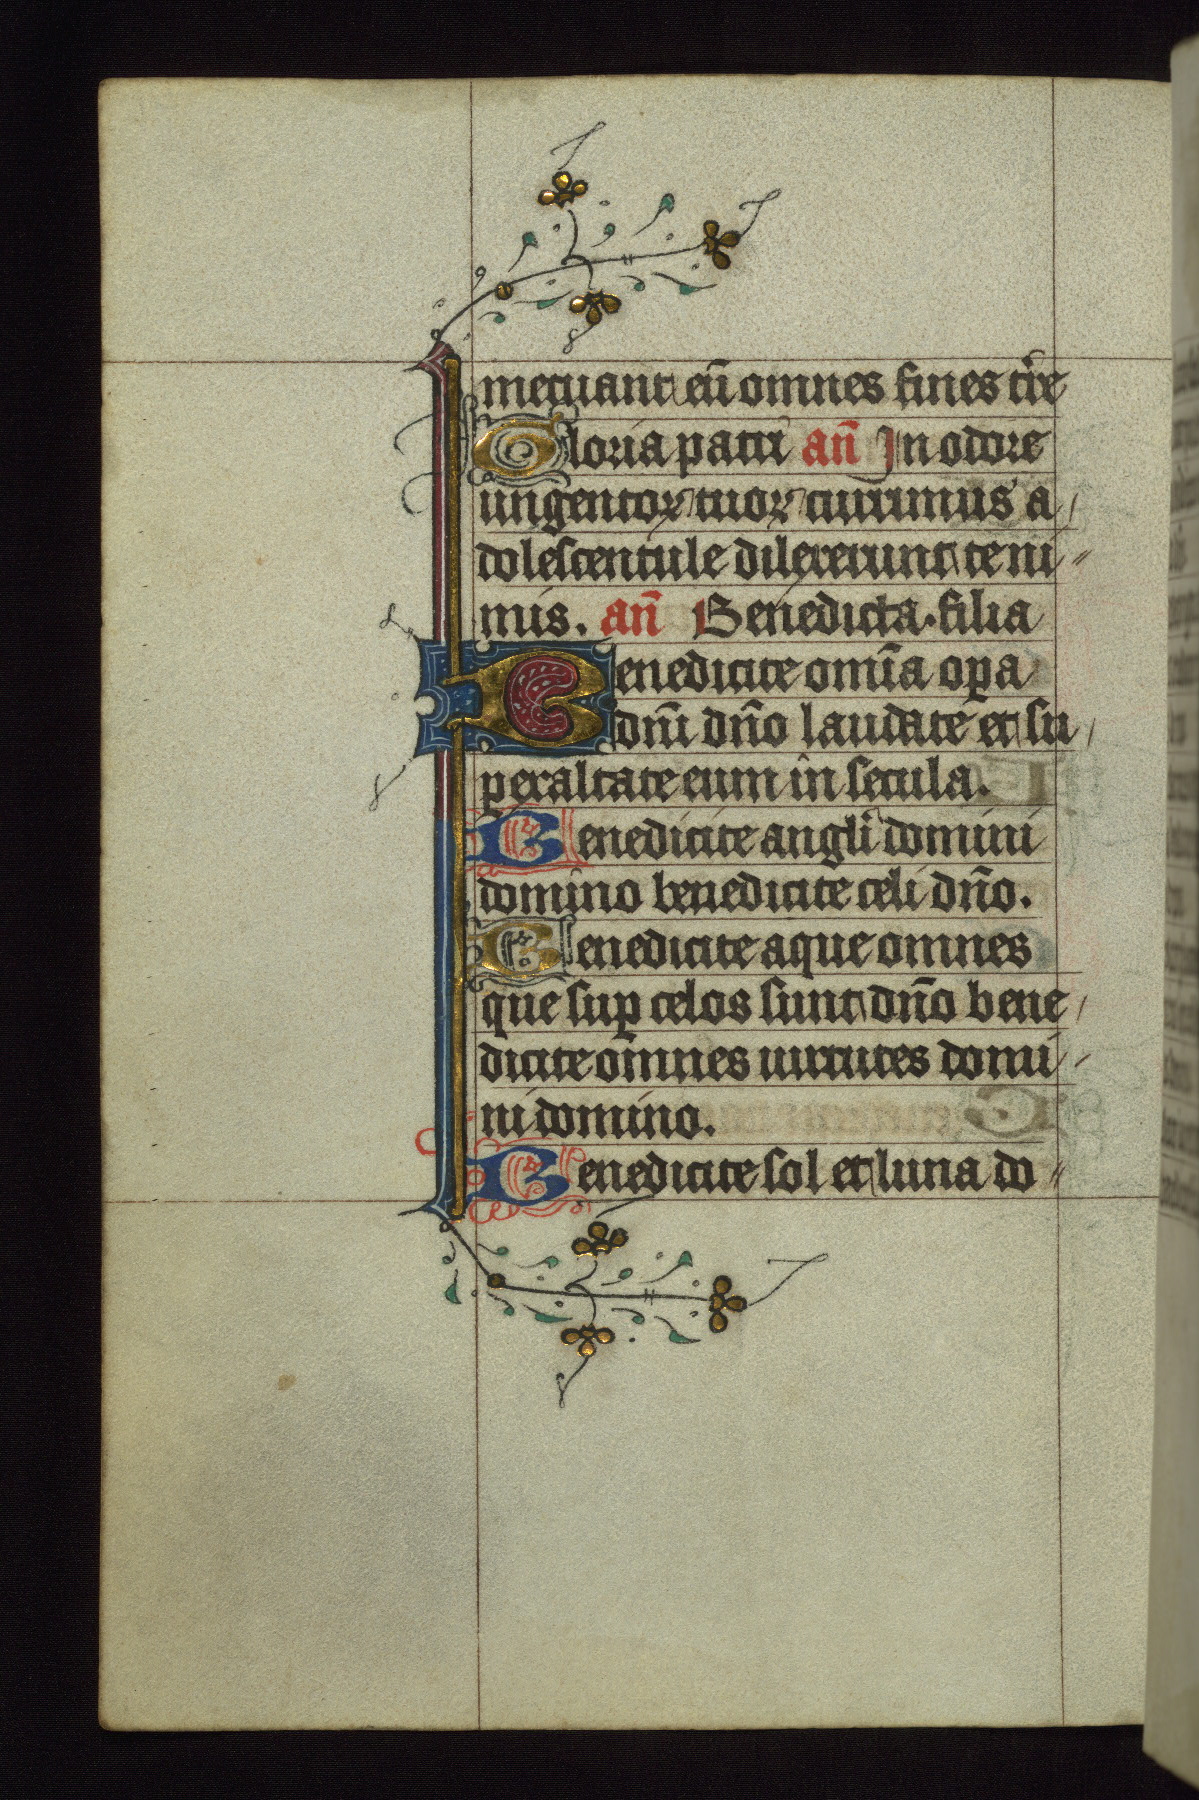 metuant eū omnes fines tr̄re
Gloria patri an̄ In odore
ungentoꝝ tuoꝝ currimus a
dolescentule dilexerunt te ni
mis. an̄ Benedicta filia
Benedicite omīa oꝑa
dn̄i dn̄o laudate et su
peraltate eum in secula.
Benedicite angli domini
domino benedicite celi dn̄o.
Benedicite aque omnes
que suꝑ celos sunt dn̄o bene
dicite omnes uirtutes domi
ni domino.
Benedicite sol et luna do